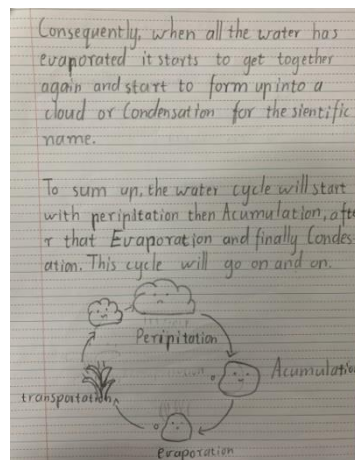 Consequently, when all the water has
evaporated it starts to get together
again and start to form up into a
cloud or Condensation for the sientific
name.
To sum up, the water cycle will start
with peripitation then Acumulation, afte
r that Evaporation and finally Condes
ation. This cycle will go on and on.
Peripitation
Acumulation
transportation
evaporation